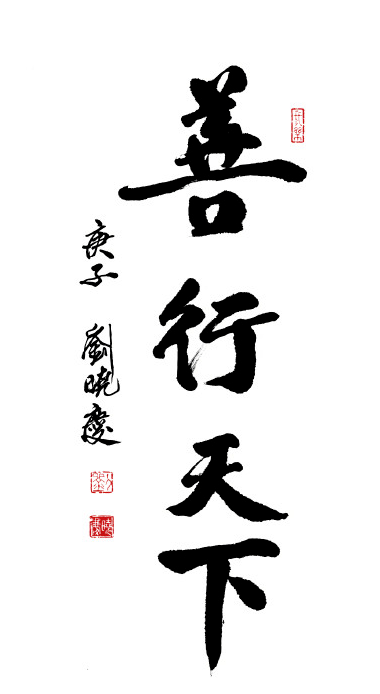 善行天下
庚子 劉曉慶